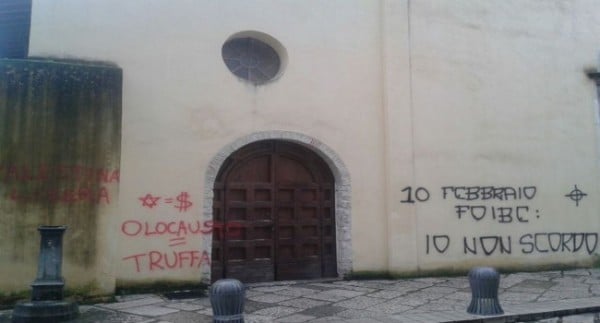 ✡=$
OLOCAUSTO
=
TRUFFA
10 FEBBRAIO
FOIBE:
IO NON SCORDO